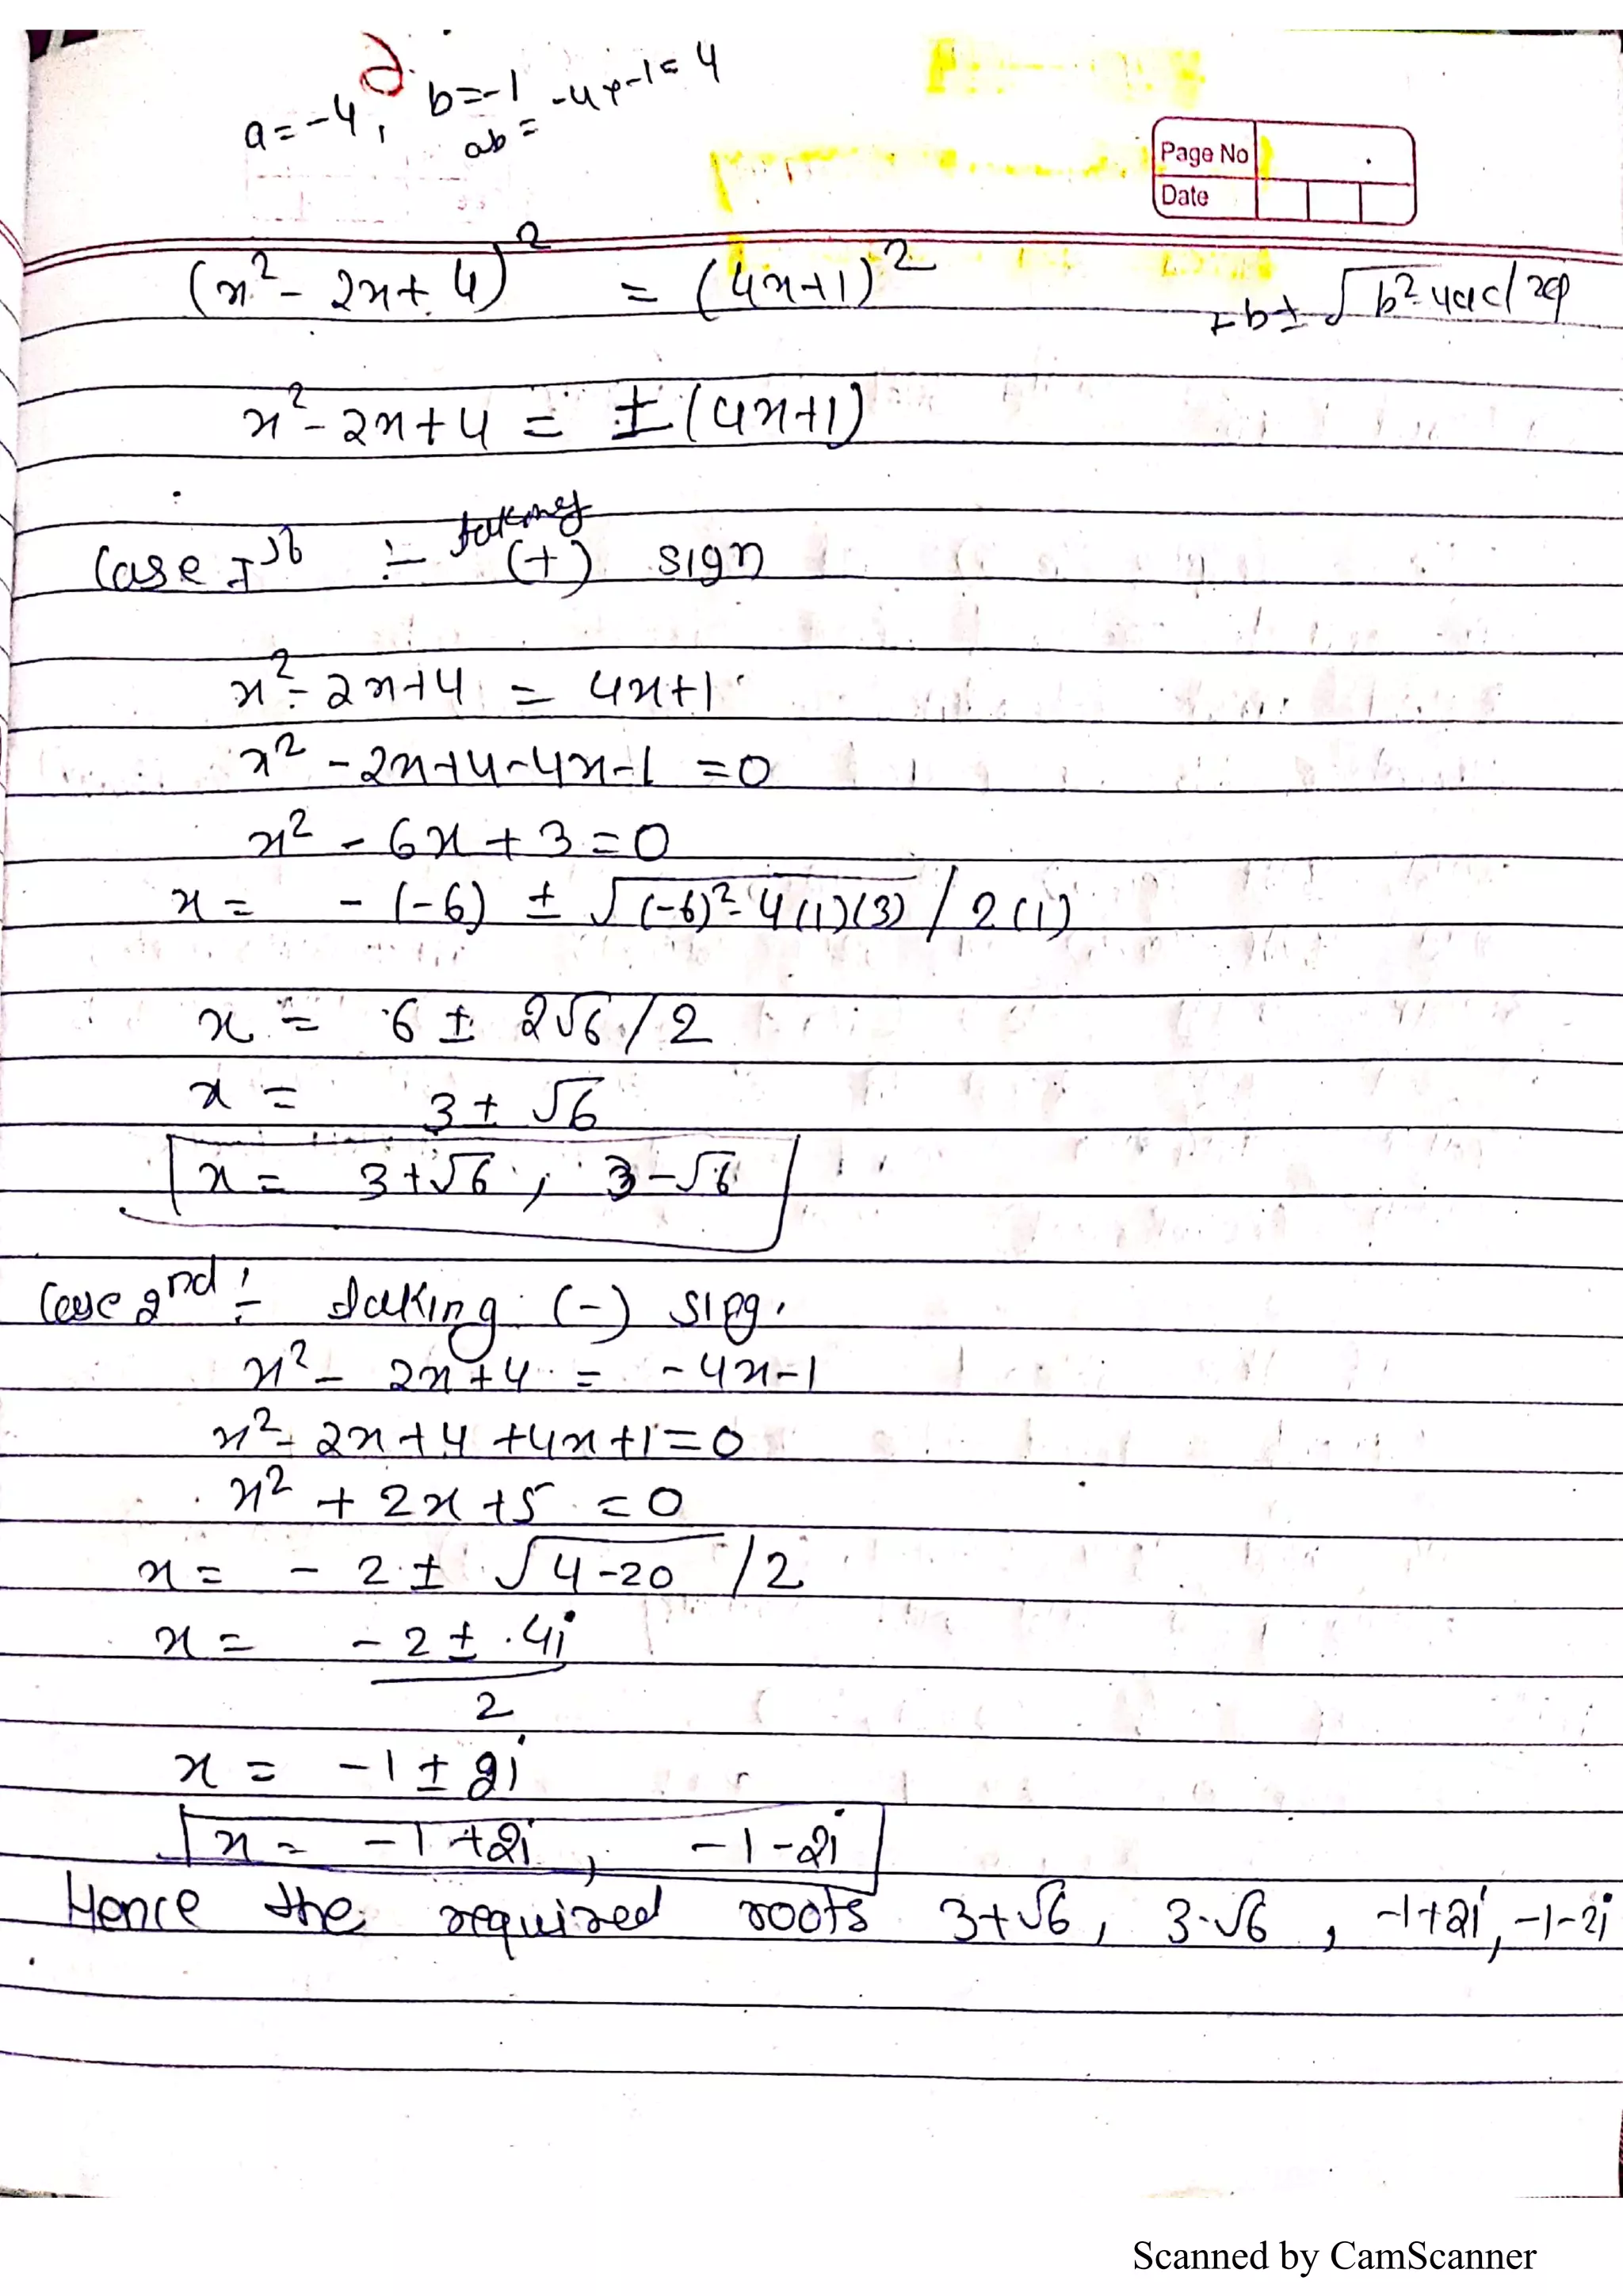 a=-4, b=-1
ab = -4x-1= 4
Page No
Date
(x²- 2x+ 4)² = (4x+1)²
-b± √b²-4ac/2a
x²- 2x+4 = ±(4x+1)
Case Ist :- taking (+) sign
x²- 2x+4 = 4x+1
x² -2x+4-4x-1 =0
x² - 6x + 3 =0
x = -(-6) ± √(-6)²-4(1)(3) / 2(1)
x = 6 ± 2√6 / 2
x = 3± √6
x = 3+√6 , 3-√6
Case 2nd :- taking (-) sign
x² - 2x+4 = -4x-1
x²- 2x+4 +4x+1=0
x² + 2x +5 =0
x = - 2 ± √4-20 /2
x = -2 ± 4i
2
x = -1 ± 2i
x = -1 +2i , -1-2i
Hence the required roots 3+√6, 3-√6 , -1+2i, -1-2i
Scanned by CamScanner